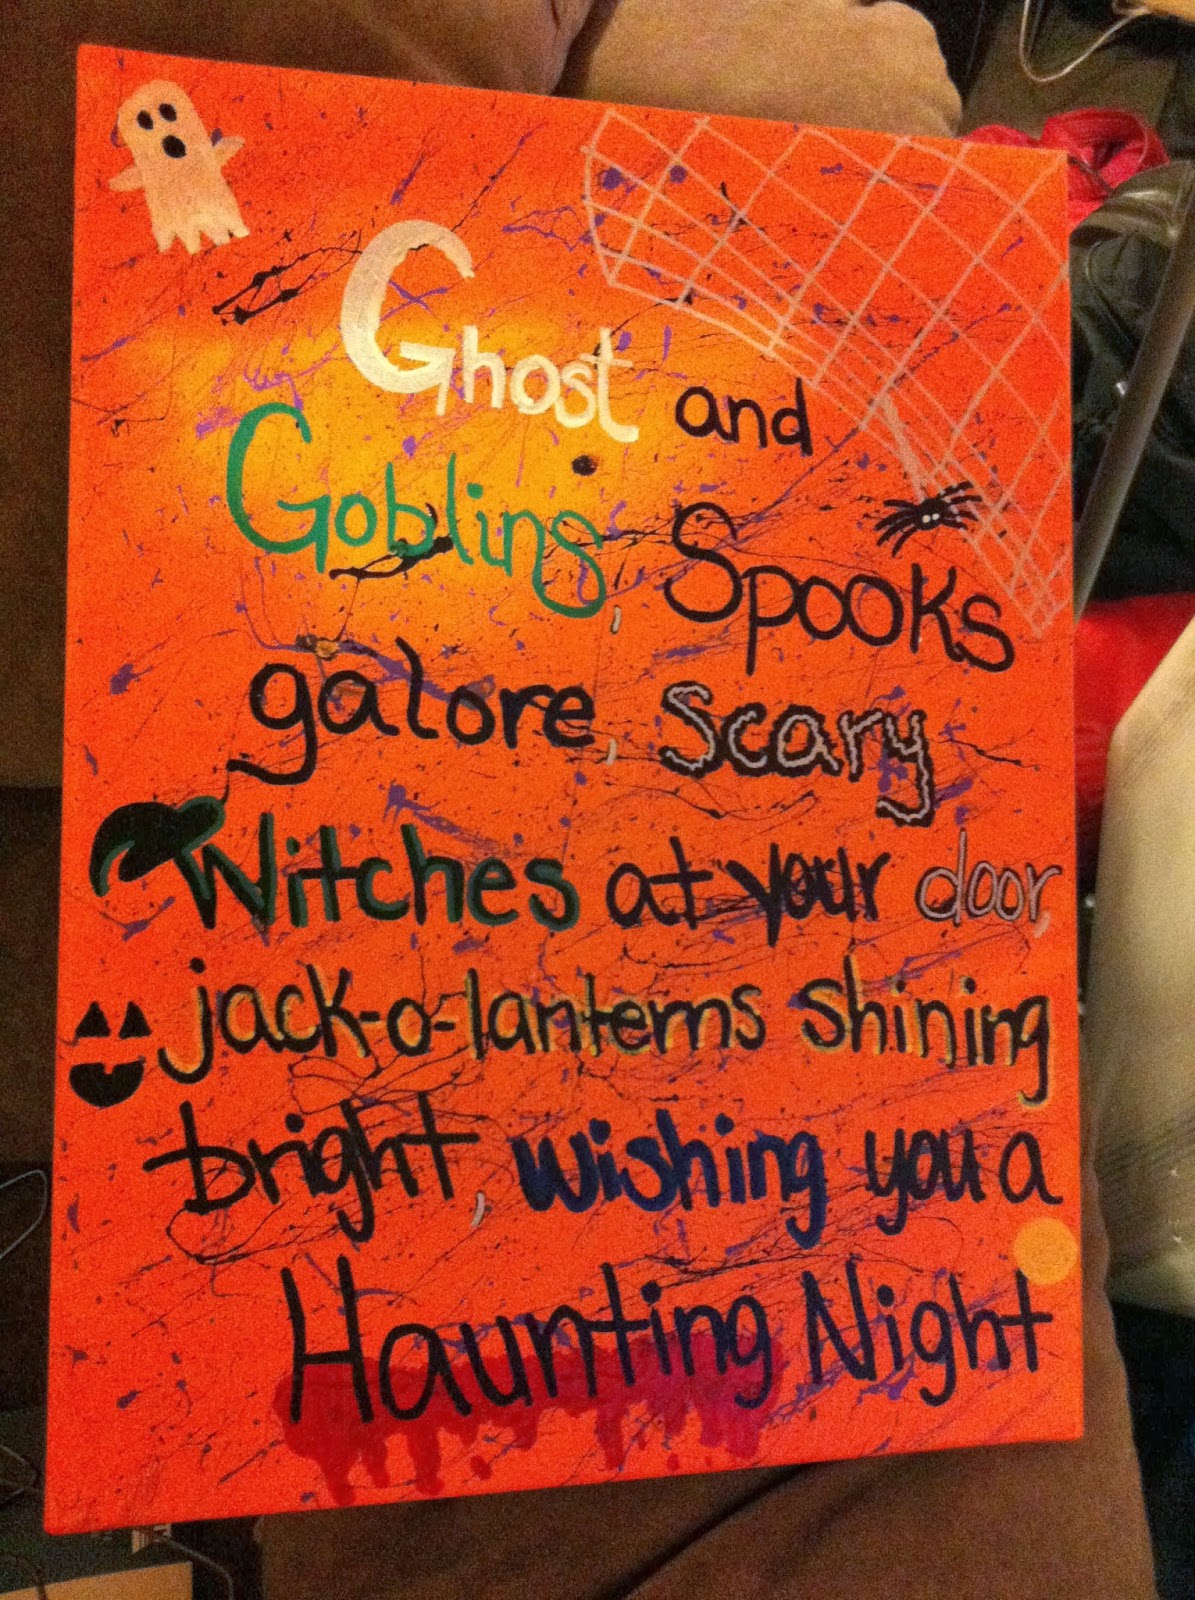 Ghost and
Goblins, Spooks
galore, scary
Witches at your door,
jack-o-lanterns shining
bright, wishing you a
Haunting Night